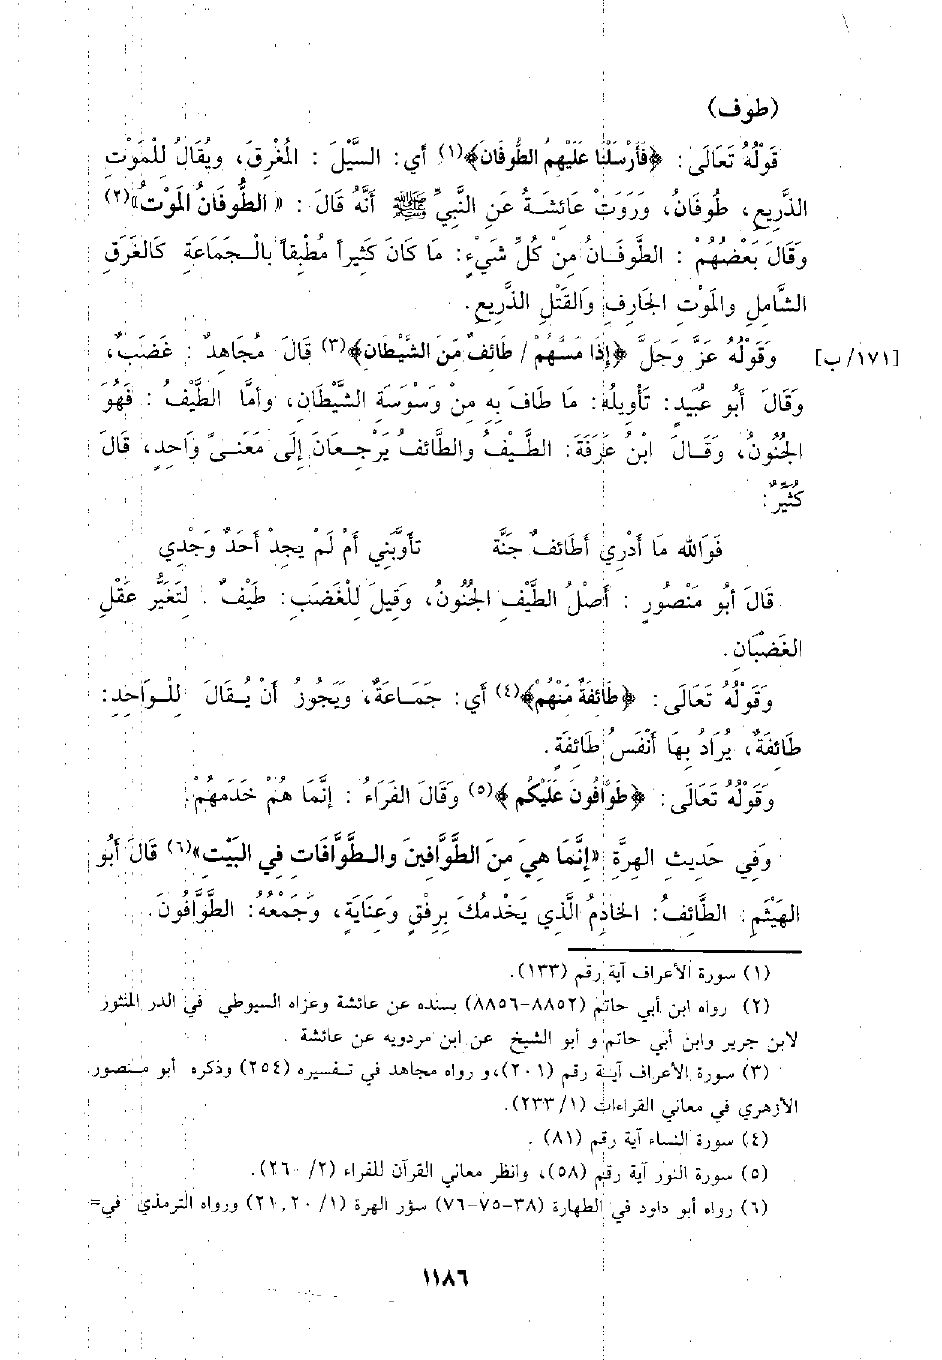 (طوف)
قَوْلُهُ تَعَالَى: ﴿فَأَرْسَلْنَا عَلَيْهِمُ الطُّوفَانَ﴾(١) أي: السَّيْلَ: المُغْرِقَ، ويُقَالُ لِلْمَوْتِ
الذَّرِيعِ، طُوفَانُ، وَرَوَتْ عَائشَةُ عَنِ النَّبِيِّ ﷺ أَنَّهُ قَالَ: «الطُّوفَانُ المَوْتُ»(٢)
وَقَالَ بَعْضُهُمْ: الطُّوفَانُ مِنْ كُلِّ شَيْءٍ: مَا كَانَ كَثِيراً مُطْبِقاً بالْجَمَاعَةِ كَالغَرَقِ
الشَّامِلِ والمَوْتِ الجَارِفِ وَالقَتْلِ الذَّرِيعِ.
[١٧١/ب] وَقَوْلُهُ عَزَّ وَجَلَّ ﴿إِذَا مَسَّهُمْ / طَائفٌ مِّنَ الشَّيْطَان﴾(٣) قَالَ مُجَاهِدٌ: غَضَبٌ،
وَقَالَ أَبُو عُبَيْدٍ: تَأْوِيلُهُ: مَا طَافَ بِهِ مِنْ وَسْوَسَةِ الشَّيْطَانِ، وأمَّا الطَّيْفُ: فَهُوَ
الجُنُونُ، وَقَالَ ابْنُ عَرَفَةَ: الطَّيْفُ والطَّائفُ يَرْجِعَانِ إِلَى مَعْنَىً وَاحِدٍ، قَالَ
كُثَيِّرٌ:
فَوَالله مَا أَدْرِي أَطَائفُ جنَّة تأوَّبَنِي أَمْ لَمْ يجِدْ أَحَدٌ وَجْدِي
قَالَ أبُو مَنْصُورٍ: أَصْلُ الطَّيْفِ الجُنُونُ، وَقِيلَ لِلْغَضَبِ: طَيْفٌ. لتَغَيُّرِ عَقْلِ
الغَضْبَانِ.
وَقَوْلُهُ تَعَالَى: ﴿طَائفَةٌ مِّنْهُمْ﴾(٤) أَي: جَمَاعَةٌ، وَيَجُوزُ أَنْ يُقَالَ لِلْوَاحِدِ:
طَائفَةٌ، يُرَادُ بِهَا أَنْفَسُ طَائفَةٍ.
وَقَوْلُهُ تَعَالَى: ﴿طَوَّافُونَ عَلَيْكُم﴾(٥) وَقَالَ الفَرَاءُ: إنَّمَا هُمْ خَدَمُهُمْ.
وَفِي حَدِيثِ الهِرَّةِ «إنَّمَا هِيَ مِنَ الطَّوَّافِينَ والطَّوَّافَاتِ فِي البَيْتِ»(٦) قَالَ أَبُو
الهَيْثَمِ: الطَّائفُ: الخَادِمُ الَّذِي يَخْدُمُكَ بِرِفْقٍ وَعِنَايَةٍ، وَجَمْعُهُ: الطَّوَّافُونَ.
(١) سورة الأعراف آية رقم (١٣٣).
(٢) رواه ابن أبي حاتم (٨٨٥٢-٨٨٥٦) بسنده عن عائشة وعزاه السيوطي في الدر المنثور
لابن جرير وابن أبي حاتم و أبو الشيخ عن ابن مردويه عن عائشة .
(٣) سورة الأعراف آية رقم (٢٠١)، و رواه مجاهد في تفسيره (٢٥٤) وذكره أبو منصور
الأزهري في معاني القراءات (٢٣٣/١).
(٤) سورة النساء آية رقم (٨١) .
(٥) سورة النور آية رقم (٥٨)، وانظر معاني القرآن للفراء (٢/ ٢٦٠).
(٦) رواه أبو داود في الطهارة (٣٨-٧٥-٧٦) سؤر الهرة (١/ ٢٠,٢١) ورواه الترمذي في=
١١٨٦